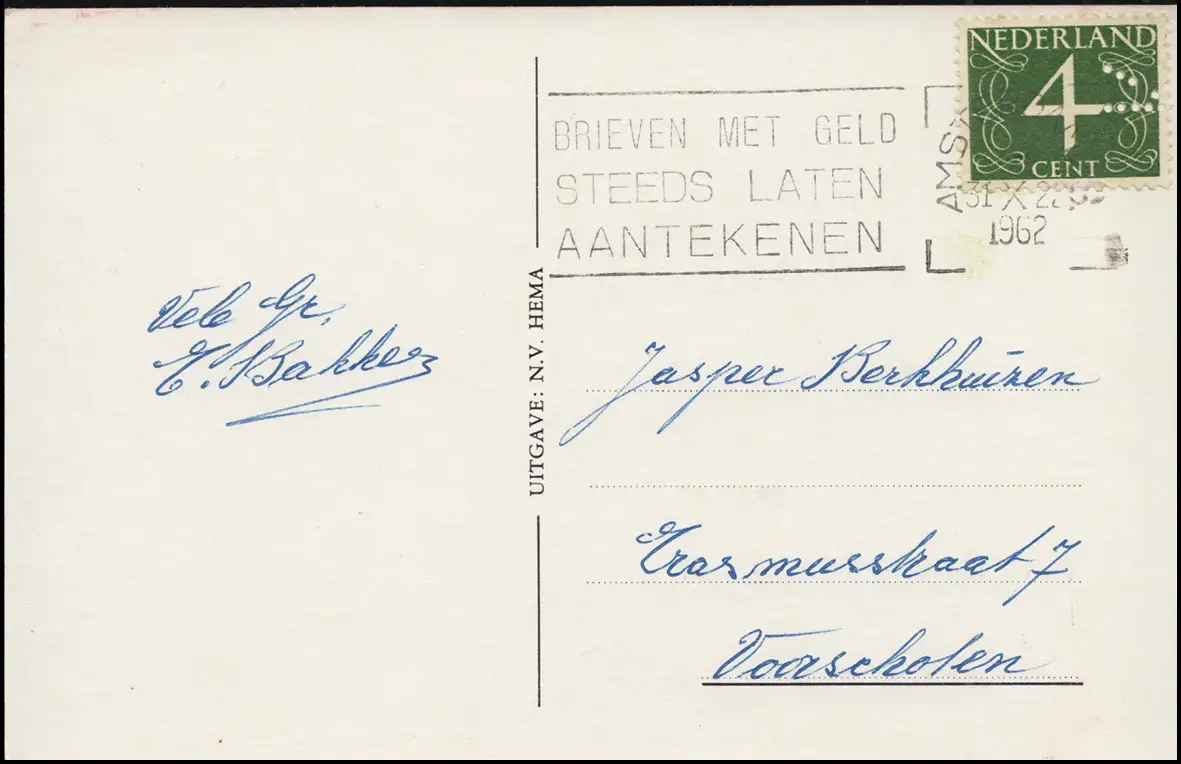 NEDERLAND
4
CENT
BRIEVEN MET GELD
STEEDS LATEN
AANTEKENEN
31 X
1962
UITGAVE: N.V. HEMA
Vele Gr.
E. Bakker
Jasper Berkhuizen
Erasmusstraat 7
Voorschoten